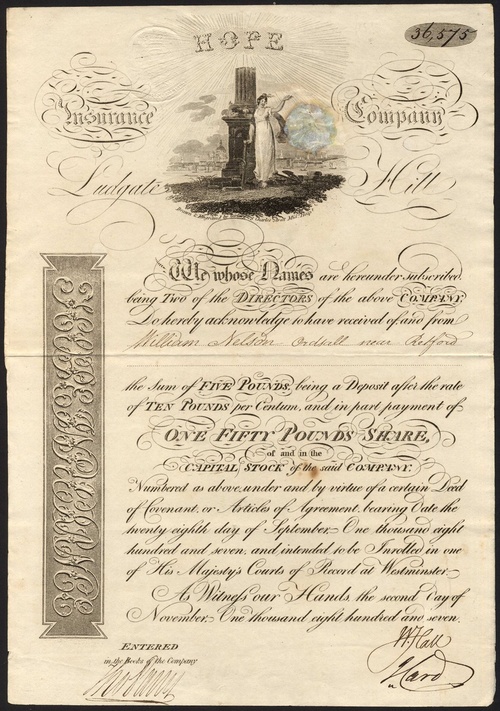 HOPE
36,575
Insurance Company
Ludgate Hill
We whose Names are hereunder subscribed
being Two of the DIRECTORS of the above COMPANY,
Do hereby acknowledge to have received of and from
William Nelson Ordsall near Retford
the Sum of FIVE POUNDS, being a Deposit after the rate
of TEN POUNDS per Centum, and in part payment of
ONE FIFTY POUNDS SHARE,
of and in the
CAPITAL STOCK of the said COMPANY.
Numbered as above, under and by virtue of a certain Deed
of Covenant, or Articles of Agreement, bearing Date the
twenty eighth day of September, One thousand eight
hundred and seven, and intended to be Inrolled in one
of His Majesty's Courts of Record at Westminster.
As Witness our Hands, the second Day of
November, One thousand eight hundred and seven.
ENTERED
in the Books of the Company
W. Hall